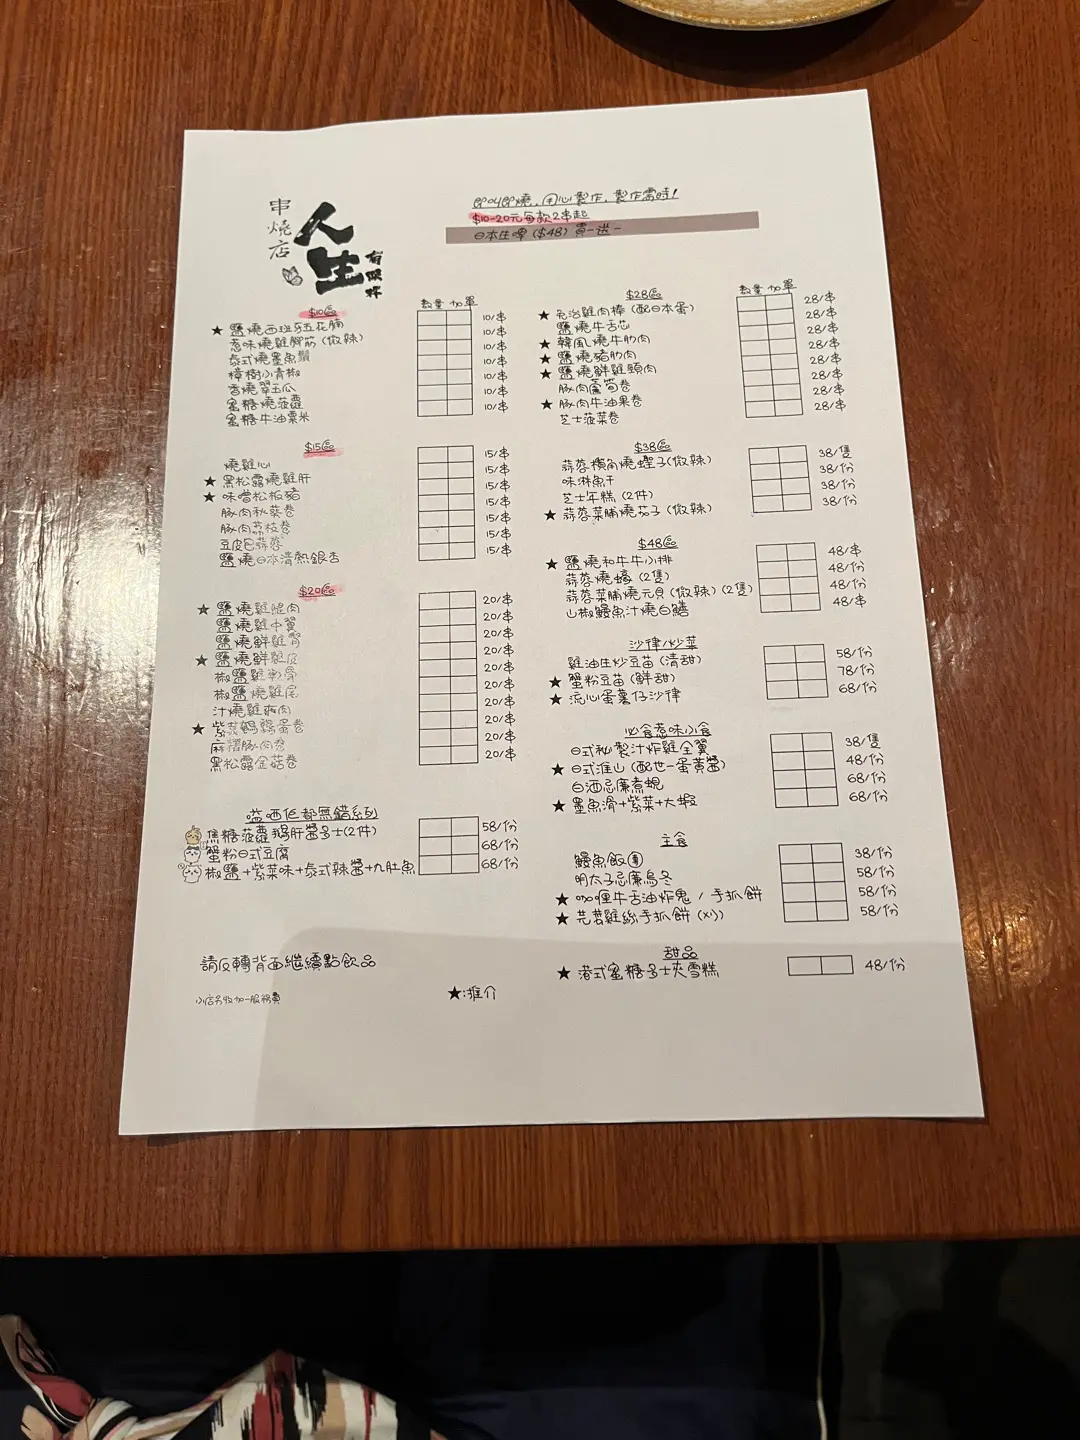 串燒店
人生
有限杯
即叫即燒，用心製作，製作需時！
$10-20元每款2串起
日本生啤 ($48) 買一送一
$10區
數量 加單
★ 鹽燒西班牙五花腩 10/串
惹味燒雞腳筋 (微辣) 10/串
泰式燒墨魚鬚 10/串
樟樹小青椒 10/串
香燒翠玉瓜 10/串
蜜糖燒菠蘿 10/串
蜜糖牛油粟米 10/串
$15區
燒雞心 15/串
★ 黑松露燒雞肝 15/串
★ 味噌松板豬 15/串
豚肉秋葵卷 15/串
豚肉荔枝卷 15/串
豆皮巴蒜蓉 15/串
鹽燒日本清熱銀杏 15/串
$20區
★ 鹽燒雞腿肉 20/串
鹽燒雞中翼 20/串
鹽燒鮮雞腎 20/串
★ 鹽燒鮮雞皮 20/串
椒鹽雞軟骨 20/串
椒鹽燒雞尾 20/串
汁燒雞肉 20/串
★ 紫菜鵪鶉蛋卷 20/串
麻糬豚肉卷 20/串
黑松露金菇卷 20/串
嗌晒佢都無錯系列
焦糖菠蘿鵝肝醬多士(2件) 58/份
蟹粉日式豆腐 68/份
椒鹽+紫菜味+泰式辣醬+九肚魚 68/份
請反轉背面繼續點飲品
小店另收加一服務費
★:推介
$28區
數量 加單
★ 免治雞肉棒 (配日本蛋) 28/串
鹽燒牛舌芯 28/串
★ 韓風燒牛肋肉 28/串
★ 鹽燒豬肋肉 28/串
★ 鹽燒鮮雞頸肉 28/串
豚肉蘆筍卷 28/串
★ 豚肉牛油果卷 28/串
芝士菠菜卷 28/串
$38區
蒜蓉欖角燒蟶子(微辣) 38/隻
味淋魚干 38/份
芝士年糕 (2件) 38/份
★ 蒜蓉菜脯燒茄子 (微辣) 38/份
$48區
★ 鹽燒和牛牛小排 48/串
蒜蓉燒蠔 (2隻) 48/份
蒜蓉菜脯燒元貝 (微辣) (2隻) 48/份
山椒鰻魚汁燒白鱔 48/串
沙律/炒菜
雞油生炒豆苗 (清甜) 58/份
★ 蟹粉豆苗 (鮮甜) 78/份
★ 流心蛋薯仔沙律 68/份
必食惹味小食
日式秘製汁炸雞全翼 38/隻
★ 日式淮山 (配世一蛋黃醬) 48/份
白酒忌廉煮蜆 68/份
★ 墨魚滑+紫菜+大蝦 68/份
主食
鰻魚飯 38/份
明太子忌廉烏冬 58/份
★ 咖喱牛舌油炸鬼 / 手抓餅 58/份
★ 芫荽雞絲手抓餅 (凍) 58/份
甜品
★ 港式蜜糖多士夾雪糕 48/份